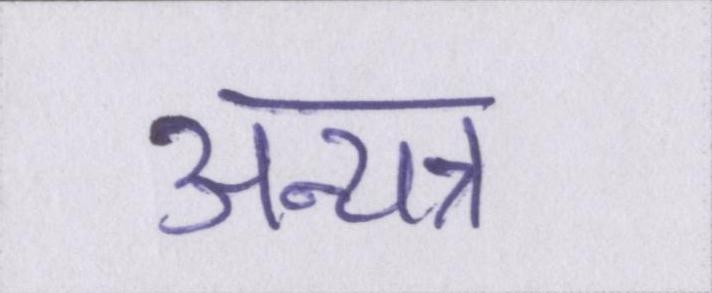 अन्यत्र